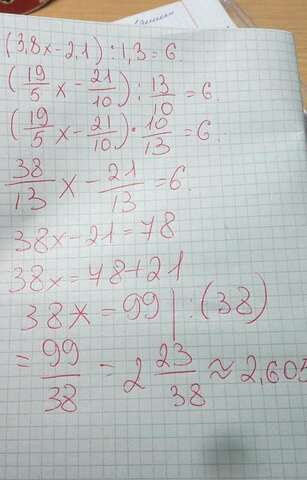 (3,8x-2,1):1,3=6.
(19/5 x - 21/10) : 13/10 = 6.
(19/5 x - 21/10) · 10/13 = 6.
38/13 x - 21/13 = 6.
38x-21=78
38x=78+21
38x=99|:(38)
= 99/38 = 2 23/38 ≈ 2,605